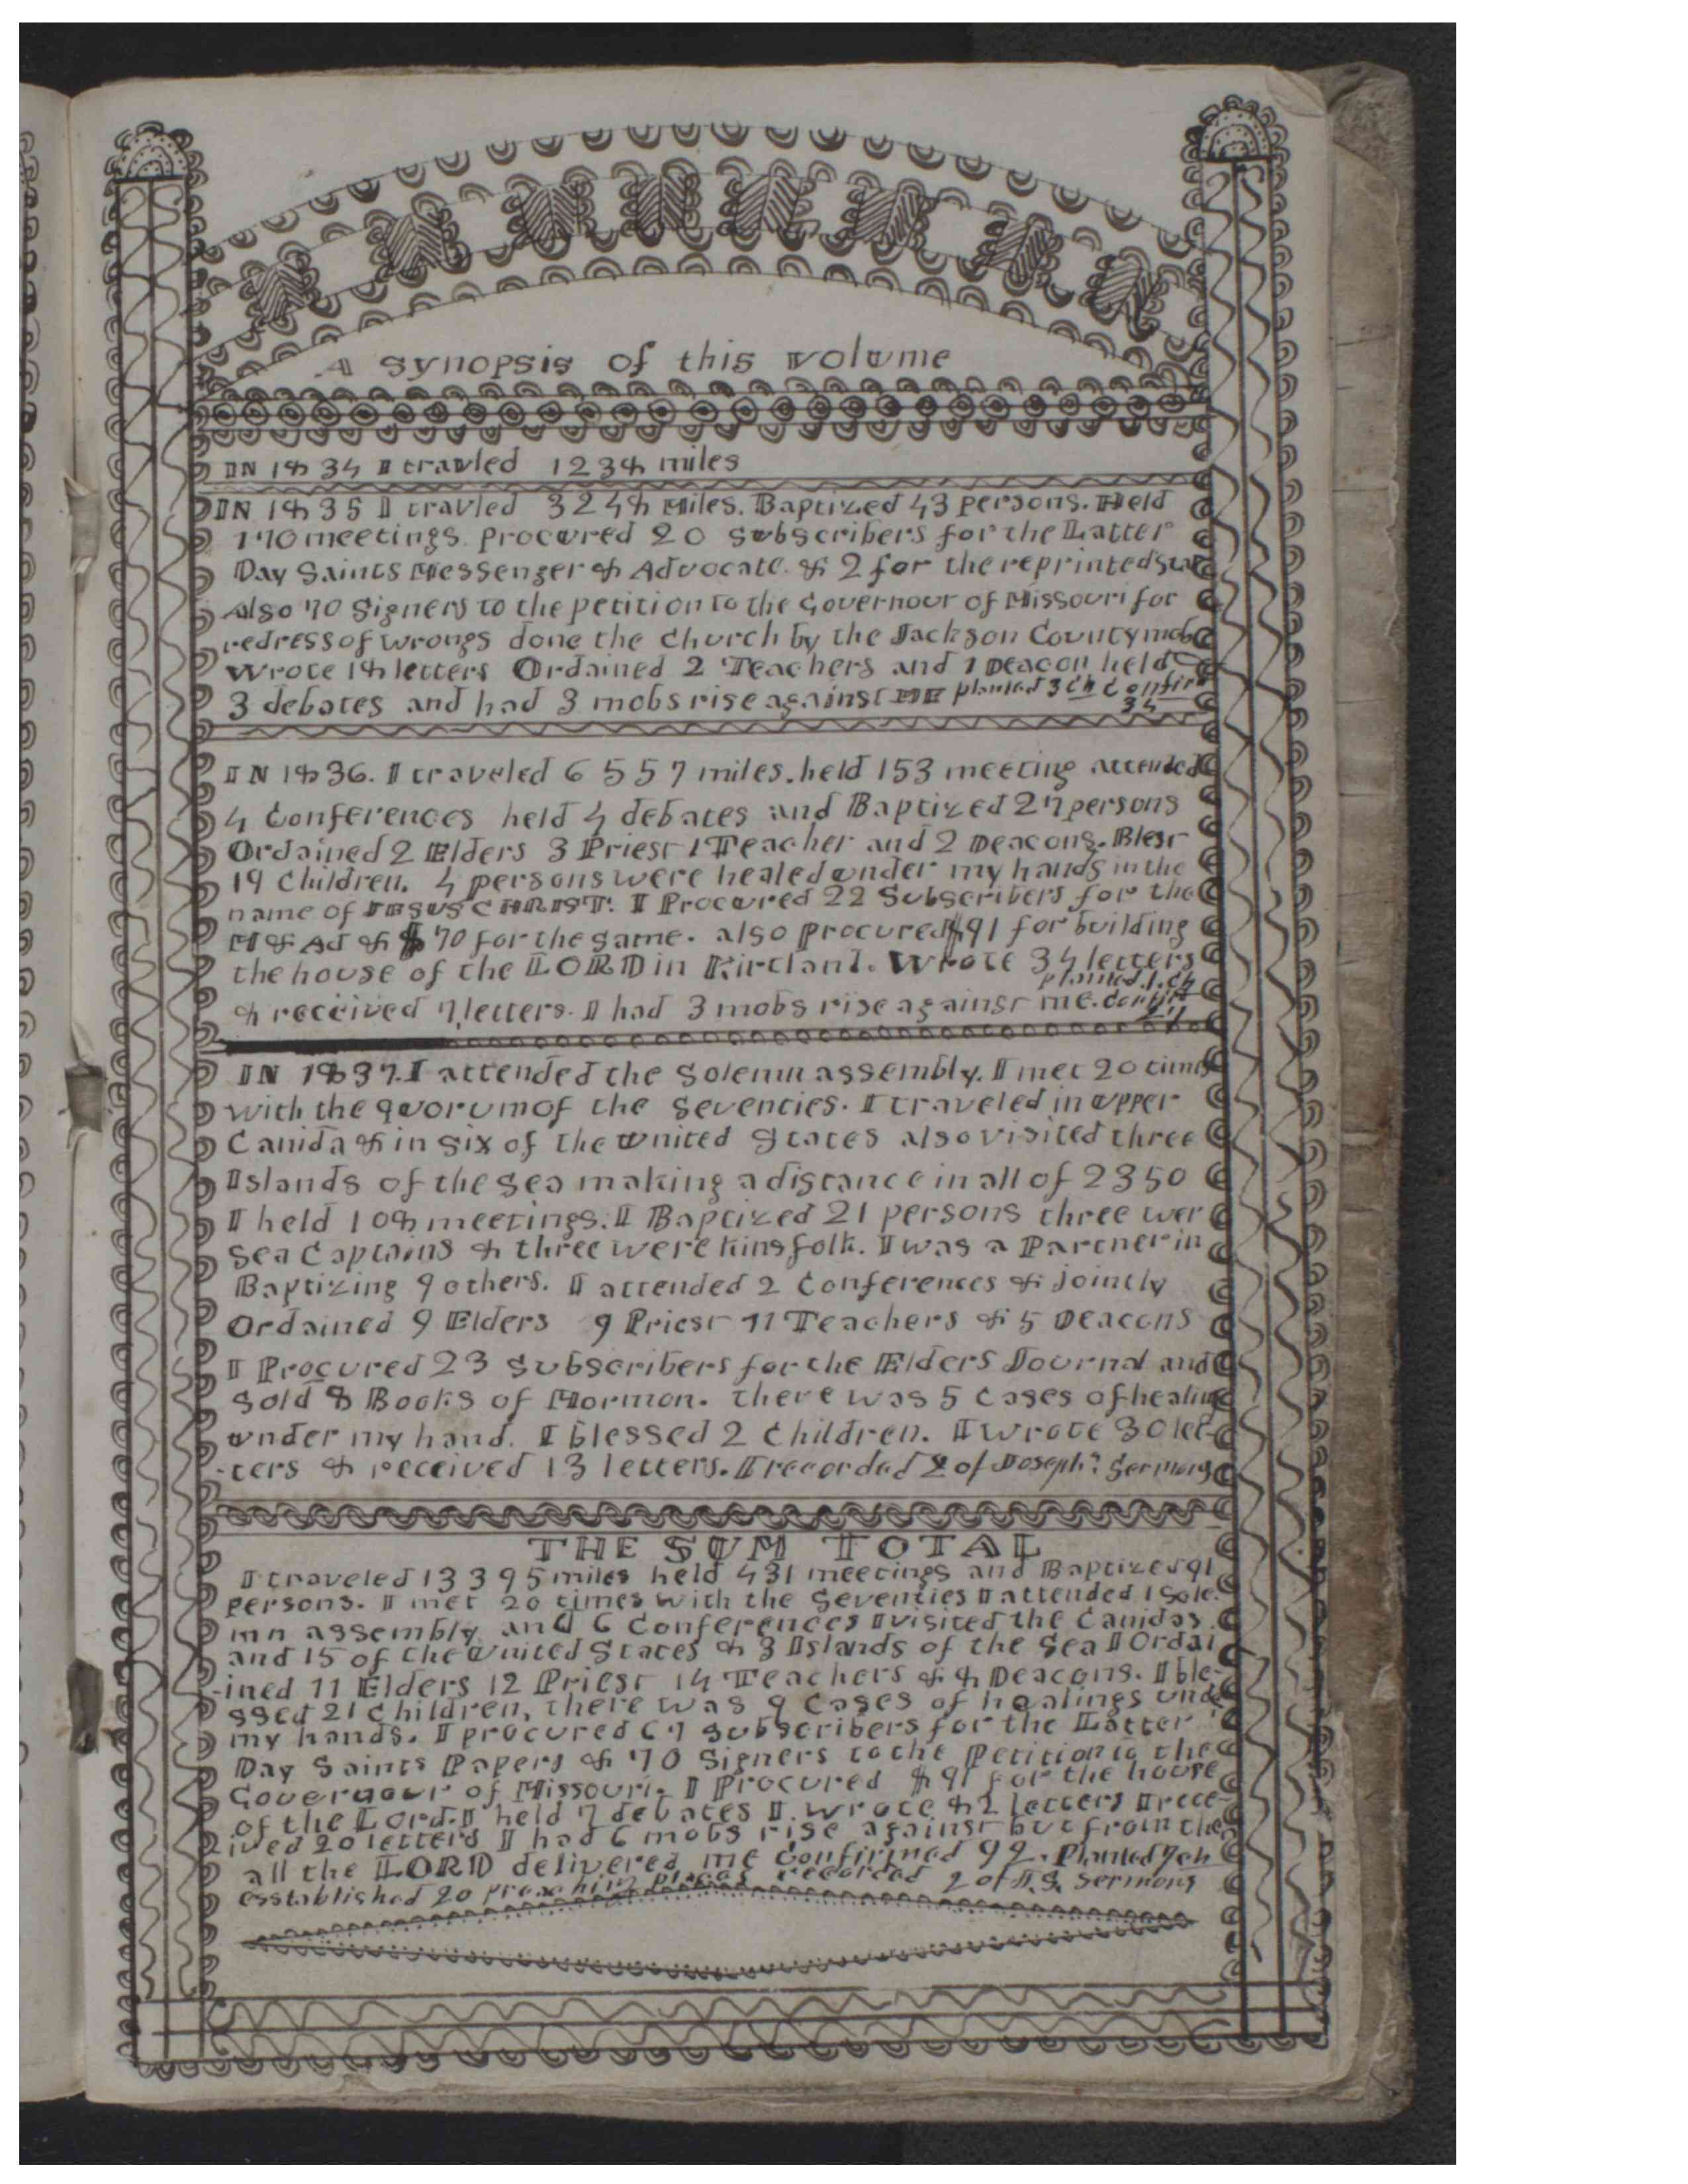 A Synopsis of this volume
IN 1834 I travled 1238 miles
IN 1835 I travled 3248 Miles. Baptized 43 persons. Held
170 meetings. procured 20 Subscribers for the Latter
Day Saints Messenger & Advocate. & 2 for the reprinted star
Also 70 Signers to the petition to the Governour of Missouri for
redress of wrongs done the Church by the Jackson County mob
wrote 18 letters Ordained 2 Teachers and 1 Deacon held
3 debates and had 3 mobs rise against ME planted 3 ch confir
34
IN 1836. I traveled 6557 miles. held 153 meeting attended
4 Conferences held 4 debates and Baptized 27 persons
Ordained 2 Elders 3 Priest 1 Teacher and 2 Deacons. Blest
19 Children. 4 persons were healed under my hands in the
name of JESUS CHRIST. I Procured 22 Subscribers for the
M & Ad & $70 for the same. also procured $91 for building
the house of the LORD in Kirtland. Wrote 34 letters
planted 1 ch
& received 7 letters. I had 3 mobs rise against me.
IN 1837. I attended the Solemn assembly. I met 20 times
with the quorum of the Seventies. I traveled in upper
Canida & in six of the United States also visited three
Islands of the Sea making a distance in all of 2350
I held 108 meetings. I Baptized 21 persons three wer
Sea Captains & three were kinsfolk. I was a Partner in
Baptizing 9 others. I attended 2 Conferences & jointly
Ordained 9 Elders 9 Priest 11 Teachers & 5 Deacons
I Procured 23 Subscribers for the Elders Journal and
Sold 8 Books of Mormon. there was 5 Cases of healing
under my hand. I blessed 2 Children. I wrote 30 let-
-ters & received 13 letters. I recorded 2 of Joseph's Sermons
THE SUM TOTAL
I traveled 13395 miles held 431 meetings and Baptized 91
persons. I met 20 times with the Seventies I attended 1 Sole-
mn assembly. and 6 Conferences I visited the Canidas
and 15 of the United States & 3 Islands of the Sea I Ordai
-ined 11 Elders 12 Priest 14 Teachers & 8 Deacons. I ble-
ssed 21 Children, there was 9 Cases of healings und
my hands. I procured 67 Subscribers for the Latter
Day Saints Papers & 70 Signers to the Petition to the
Governour of Missouri. I Procured $91 for the house
of the Lord. I held 7 debates I wrote 82 letters I rece-
ived 20 letters I had 6 mobs rise against but from them
all the LORD delivered me Confirmed 92. Planted 4 ch
esstablished 20 preaching places recorded 2 of J. S. Sermons